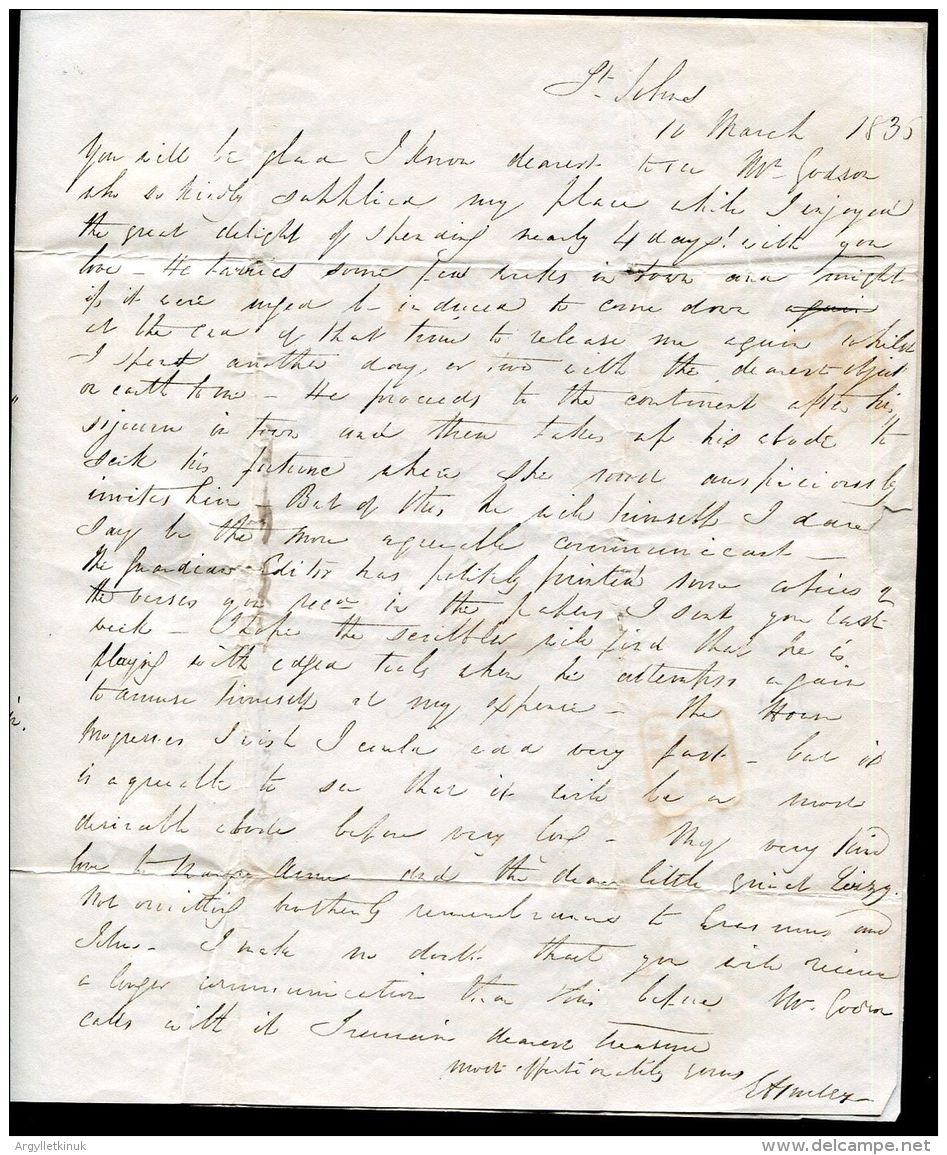 St. Johns
10 March 183
You will be glad I know dearest to see Mr. Godson
who so kindly supplied my place while I enjoyed
the great delight of spending nearly 4 days! with you
love - He tarries some few weeks in town and might
if it were urged be induced to come down again
at the end of that time to release me again whilst
I spent another day, or two with the dearest object
on earth to me - He proceeds to the continent after his
sojourn in town and then takes up his abode to
seek his fortune where she most auspiciously
invites him - But of this he will himself I dare
say be the more agreeable communicant -
The Guardian Editor has politely printed some copies of
the verses you recd in the papers I sent you last
week - I hope the scribbler will find that he is
playing with edged tools when he attempts again
to amuse himself at my expense - The House
progresses I wish I could add very fast - but it
is agreeable to see that it will be a most
desirable abode before very long - My very kind
love to Anne and the dear little Lizzy.
Not omitting brotherly remembrances to Erasmus and
John - I make no doubt that you will receive
a longer communication than this before Mr. Godson
calls with it I remain dearest treasure
most affectionately yours
Argylletkinuk
www.delcampe.net